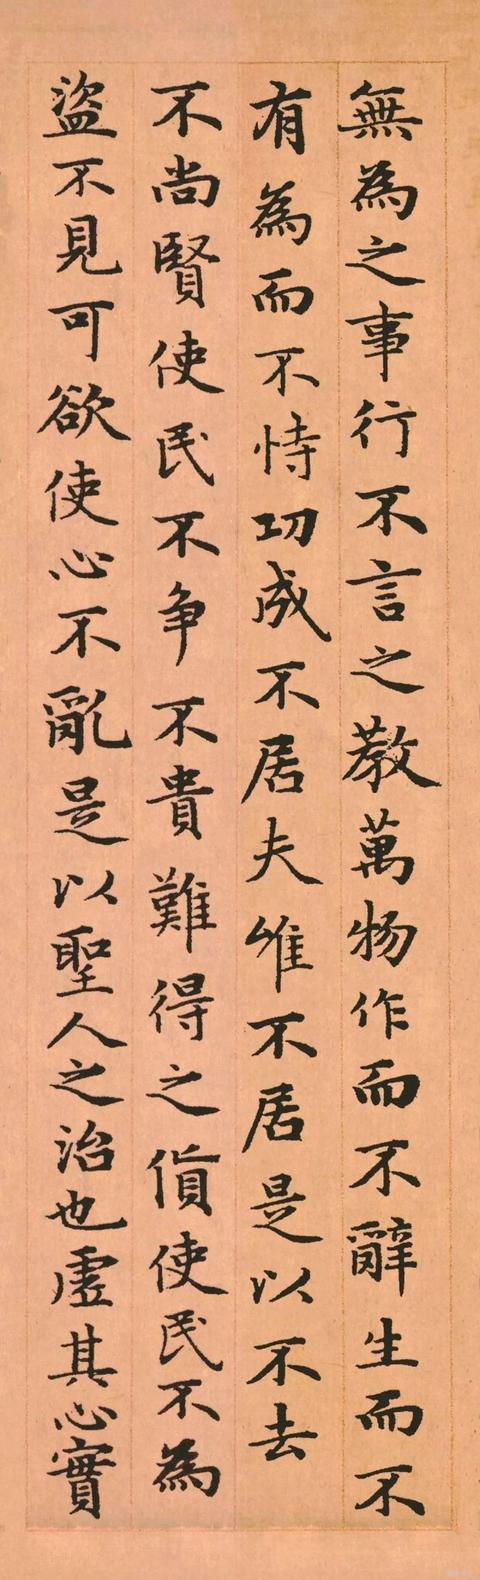 無為之事行不言之教萬物作而不辭生而不
有為而不恃功成不居夫惟不居是以不去
不尚賢使民不争不貴難得之貨使民不為
盜不見可欲使心不亂是以聖人之治也虛其心實